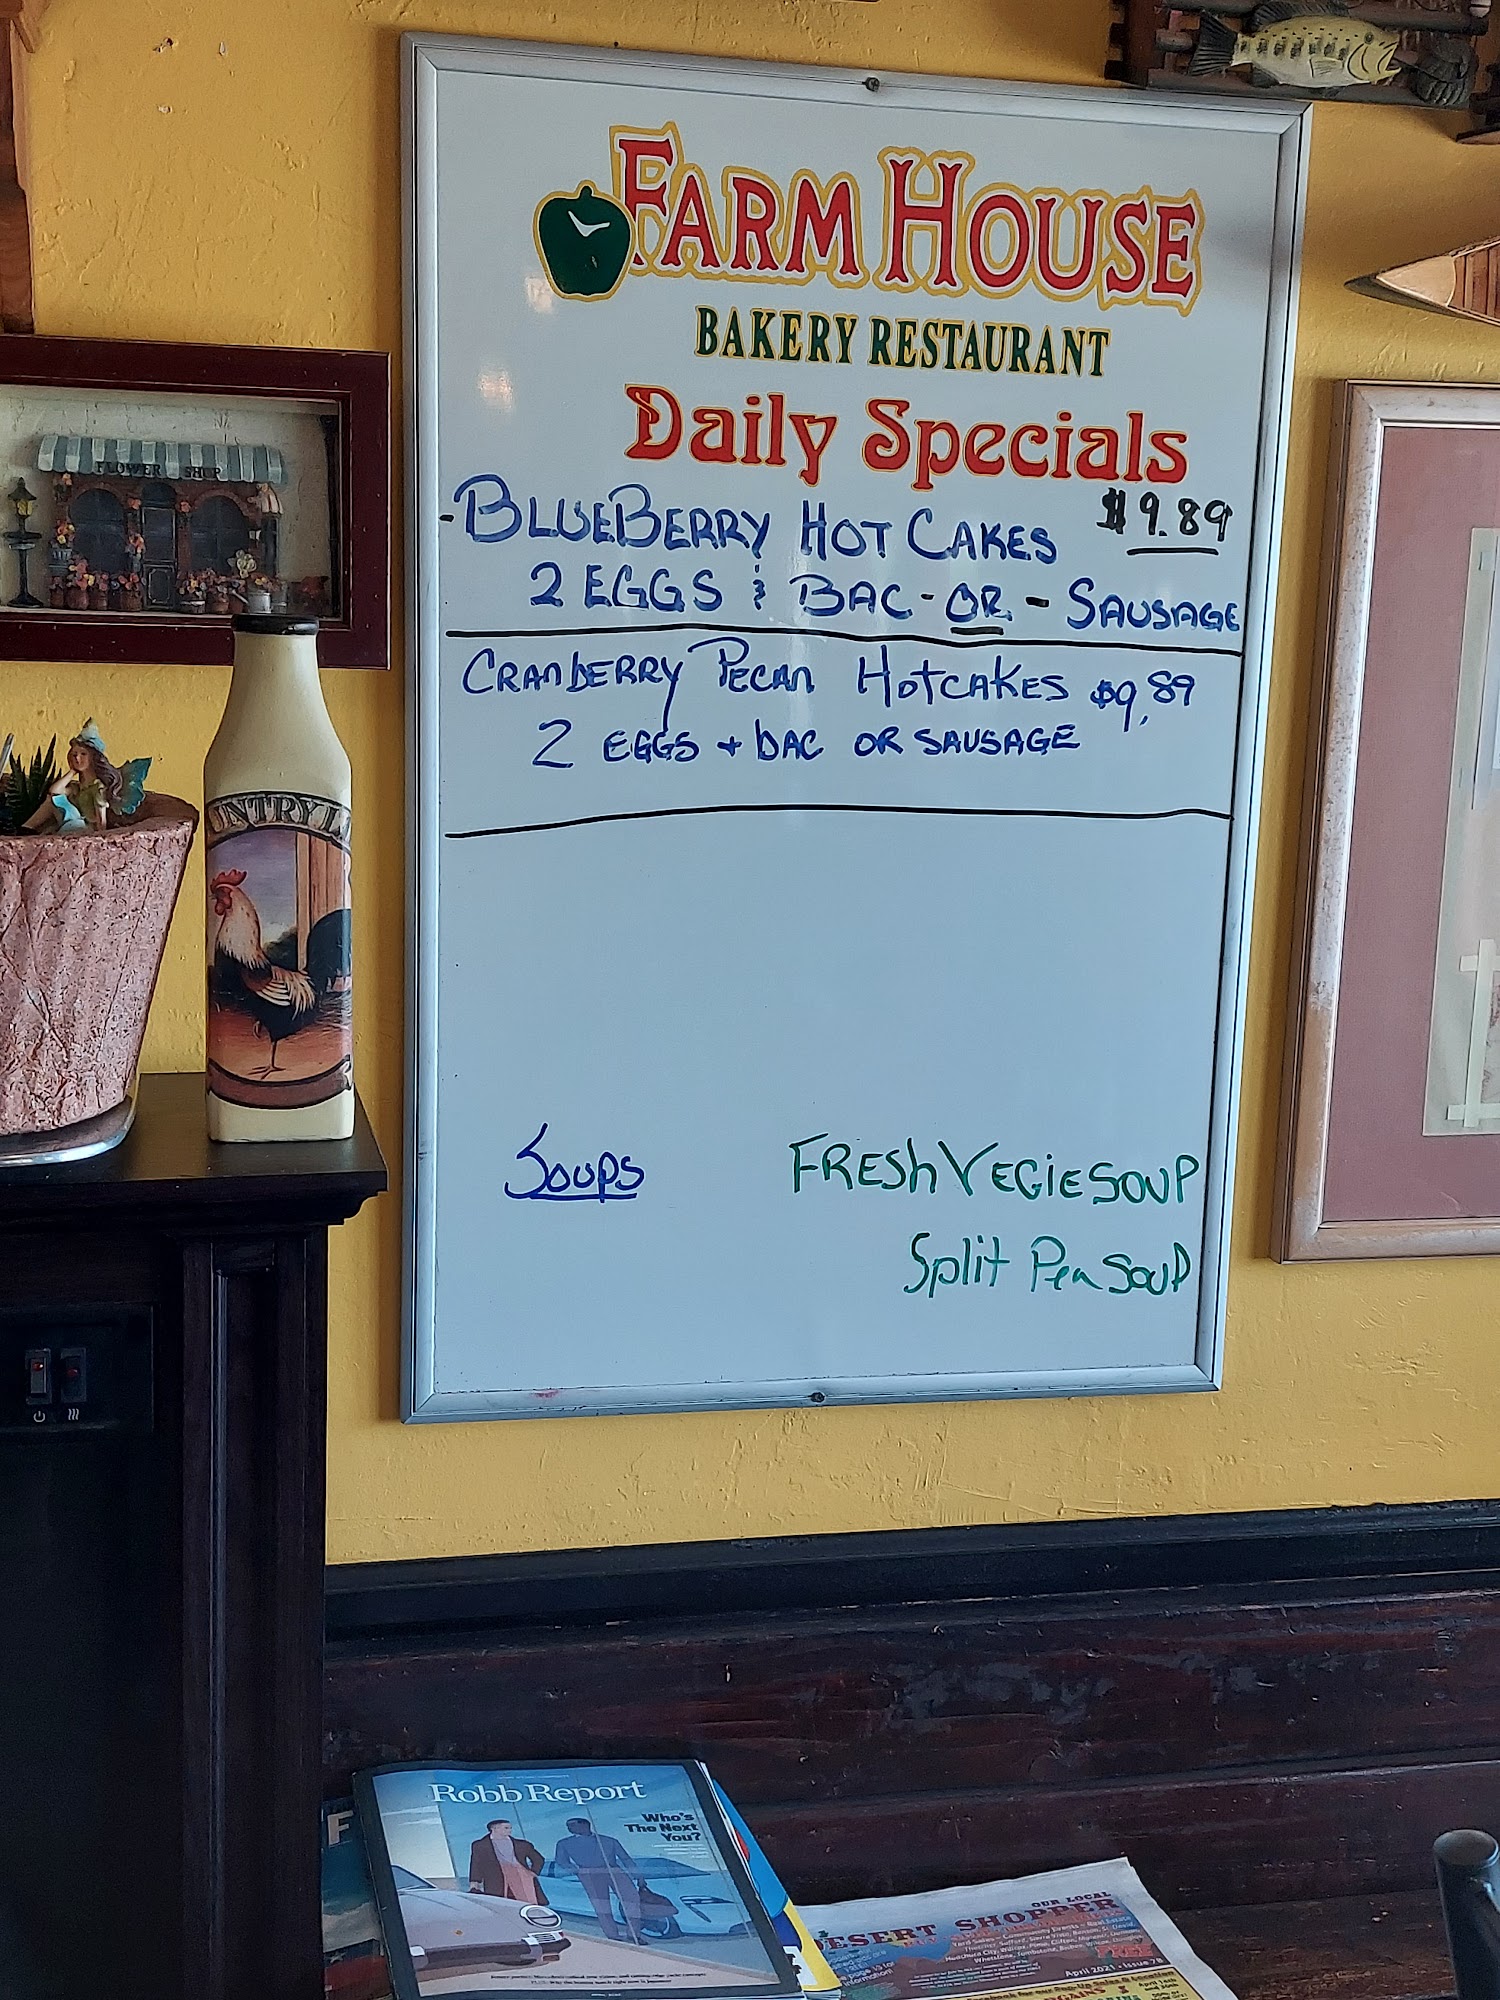 FARM HOUSE
BAKERY RESTAURANT
Daily Specials
-BLUEBERRY HOT CAKES $9.89
2 EGGS & BAC-OR-SAUSAGE
CRANBERRY PECAN HOTCAKES $9.89
2 EGGS + BAC OR SAUSAGE
Soups FRESH VEGIE SOUP
Split Pea SOUP
FLOWER SHOP
UNTRY L
Robb Report
Who's
The Next
You?
F
OUR LOCAL
DESERT SHOPPER
FREE
April 2021 • Issue 78